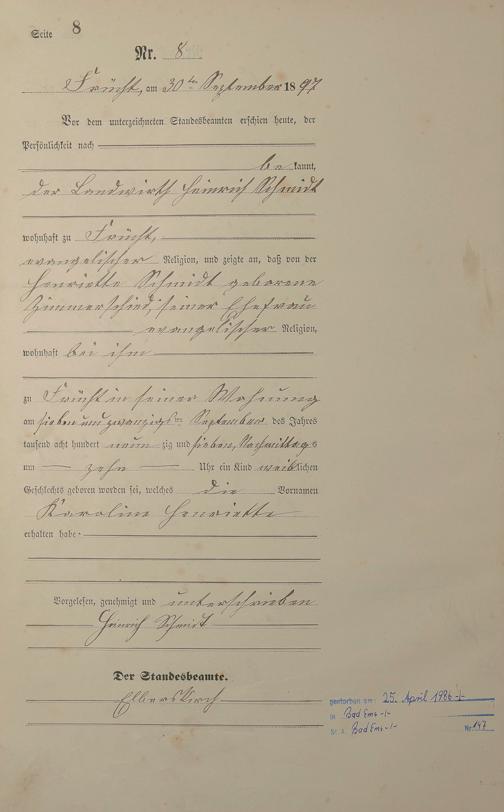 Seite 8
Nr. 8.
Frücht, am 30ten September 1897
Vor dem unterzeichneten Standesbeamten erschien heute, der
Persönlichkeit nach
be kannt,
der Landwirth Heinrich Schmidt
wohnhaft zu Frücht,
evangelischer Religion, und zeigte an, daß von der
Henriette Schmidt geborene
Zimmerschied, seiner Ehefrau
evangelischer Religion,
wohnhaft bei ihm
zu Frücht in seiner Wohnung
am sieben und zwanzigsten September des Jahres
tausend acht hundert neun zig und sieben, Nachmittags
um zehn Uhr ein Kind weiblichen
Geschlechts geboren worden sei, welches die Vornamen
Karoline Henriette
erhalten habe.
Vorgelesen, genehmigt und unterschrieben
Heinrich Schmidt
Der Standesbeamte.
Elberskirch
gestorben am: 25. April 1986 -/-
in Bad Ems -/-
St. A. Bad Ems -/- Nr. 147